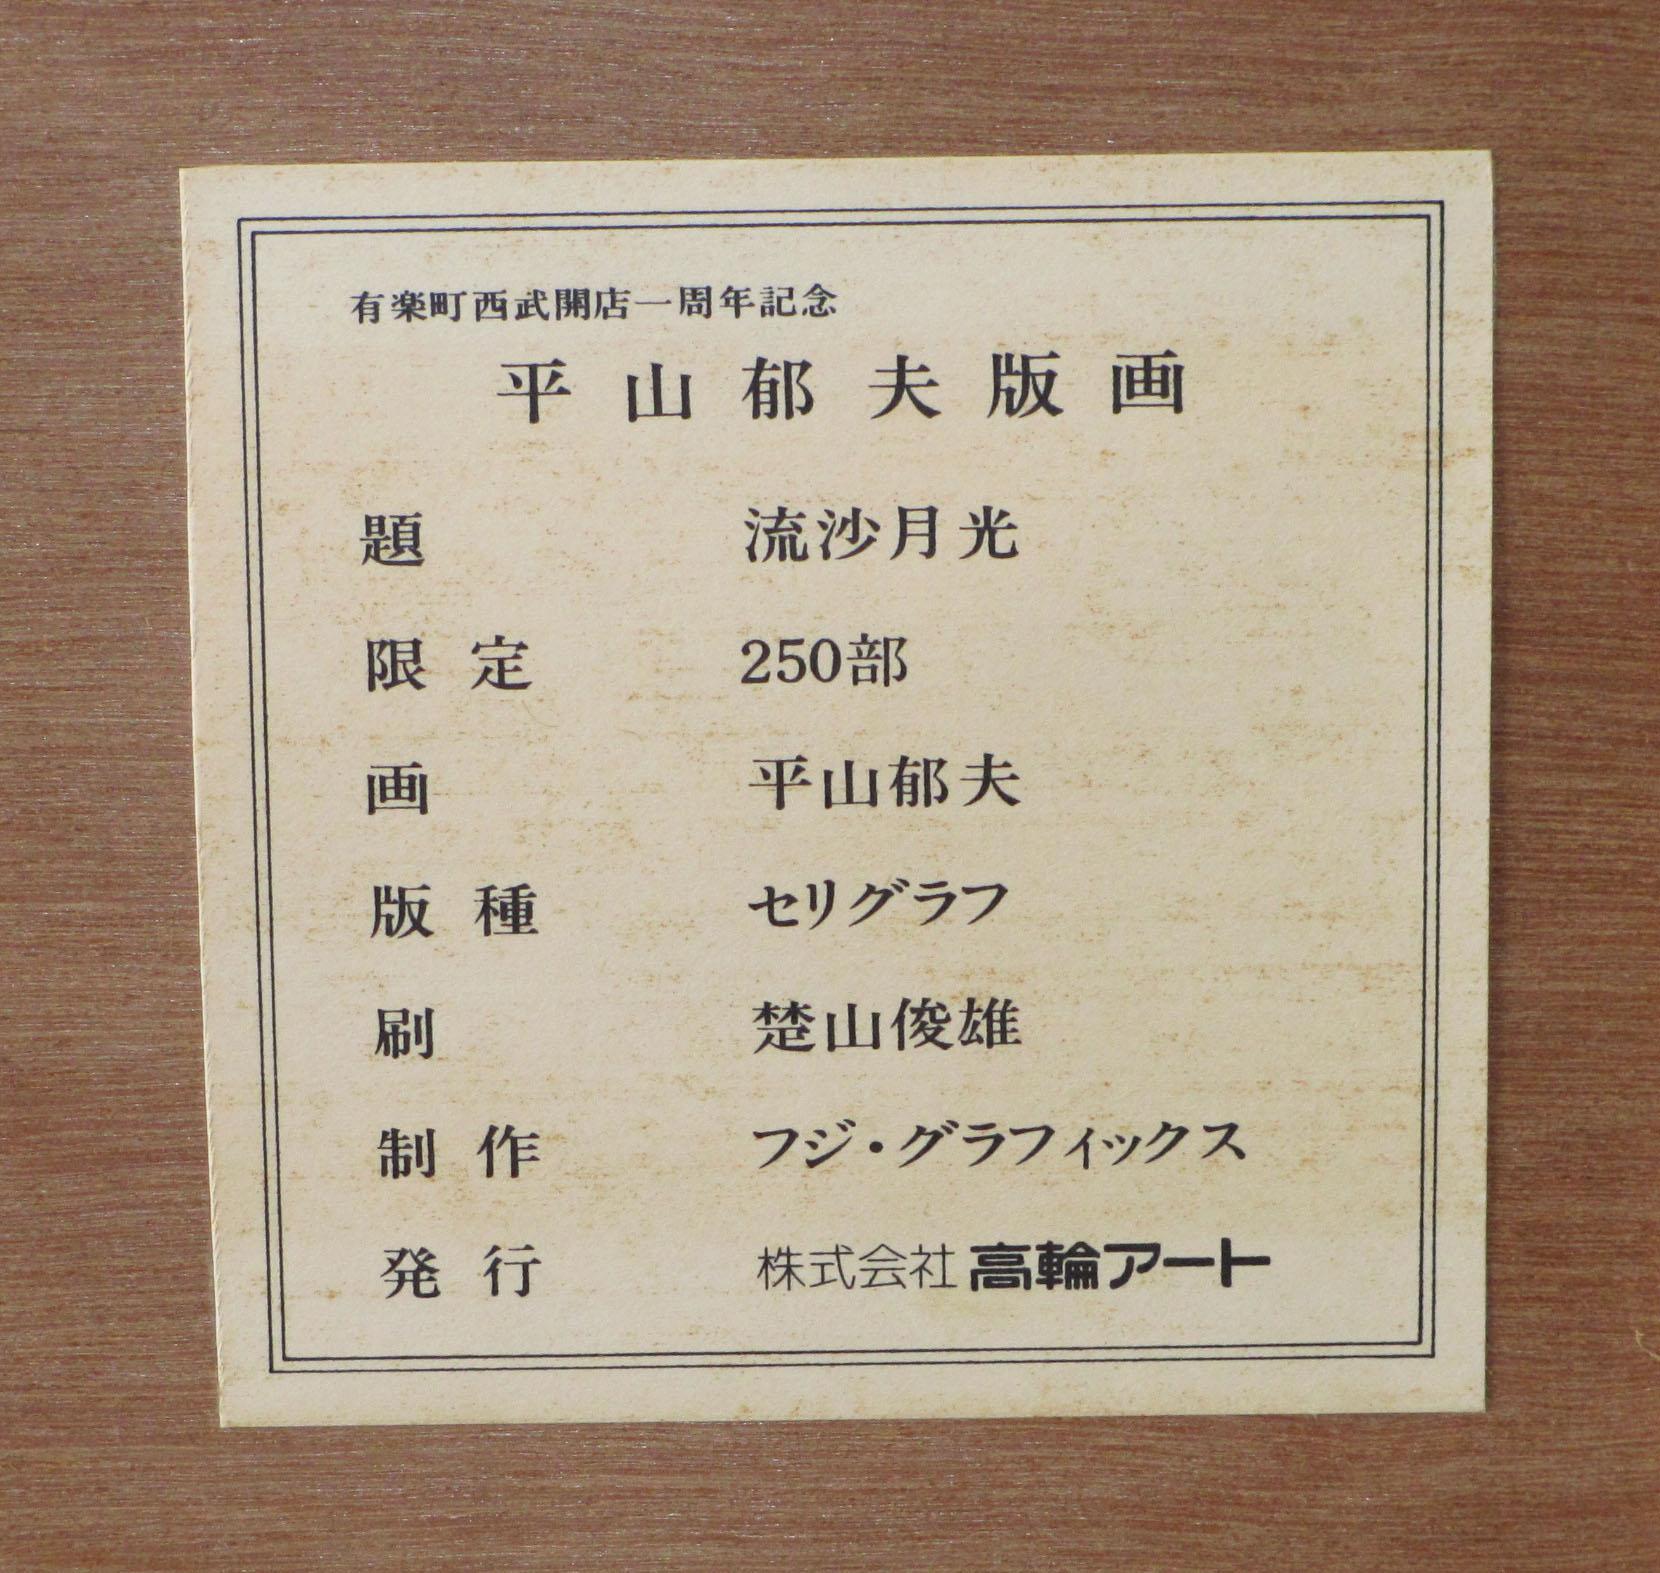 有楽町西武開店一周年記念
平山郁夫版画
題 流沙月光
限定 250部
画 平山郁夫
版種 セリグラフ
刷 楚山俊雄
制作 フジ・グラフィックス
発行 株式会社高輪アート